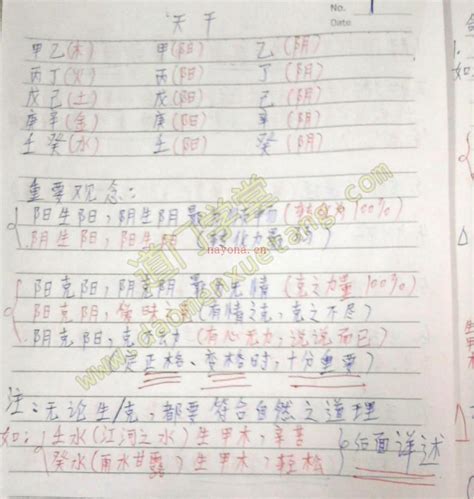 No. 1
Date
天干
甲乙(木) 甲(阳) 乙(阴)
丙丁(火) 丙(阳) 丁(阴)
戊己(土) 戊(阳) 己(阴)
庚辛(金) 庚(阳) 辛(阴)
壬癸(水) 壬(阳) 癸(阴)
重要观念:
阳生阳,阴生阴 最 100%)
阴生阳,阳生阴
nayona.cn
阳克阳,阴克阴 最 无情 (克之力量 100%)
阳克阴, (有情之克,克之不尽)
阴克阳, (有心无力,说说而已)
定正格、变格时,十分重要)
注:无论生/克,都要符合自然之道理
如:壬水(江河之水)生甲木,辛苦
癸水(雨水甘露),生甲木,轻松
后面详述
道门学堂
www.daomenxuetang.com
如